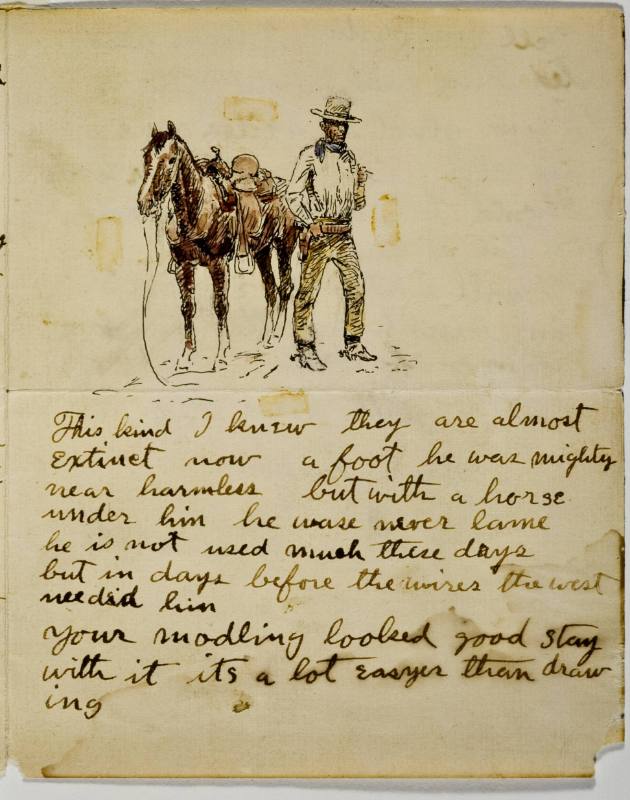 This kind I knew they are almost
extinct now a foot he was mighty
near harmless but with a horse
under him he wase never lame
he is not used much these days
but in days before the wires the west
needid him
your modling looked good stay
with it its a lot easyer than draw
ing